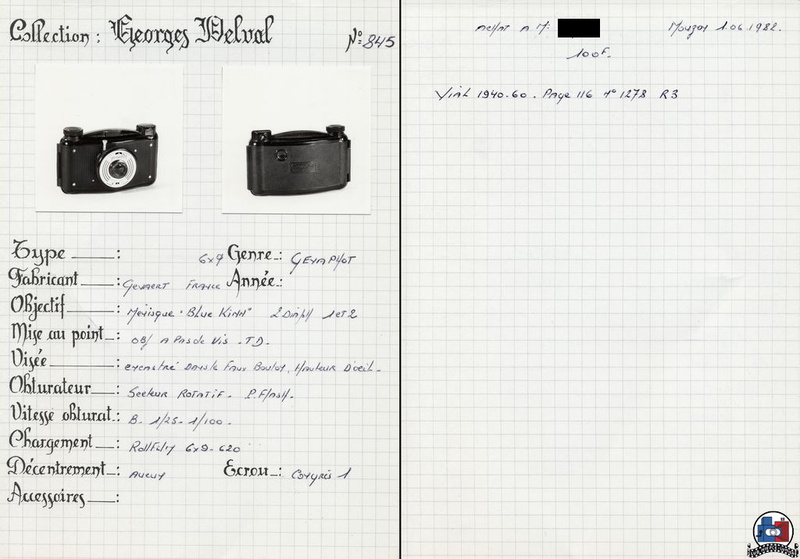 Collection : Georges Delval
N° 845
Type : 6x9 Genre : GEVAPHOT
Fabricant : GEVAERT FRANCE Année :
Objectif : Ménisque "Blue Kinn" 2 Diaph 1 et 2
Mise au point : OBJ A Pas de Vis - T.D.
Visée : encastré Dans le Faux Boulot, Hauteur D'oeil.
Obturateur : Secteur ROTATIF - P. Flash.
Vitesse obturat. : B. 1/25 - 1/100.
Chargement : Rollfilm 6x9 - 620
Décentrement : AUCUN Ecrou : Congrès 1
Accessoires :
Achat A M. Mouzon 1.06.1982.
100F.
Vial 1940-60. Page 116 n° 1278 R3